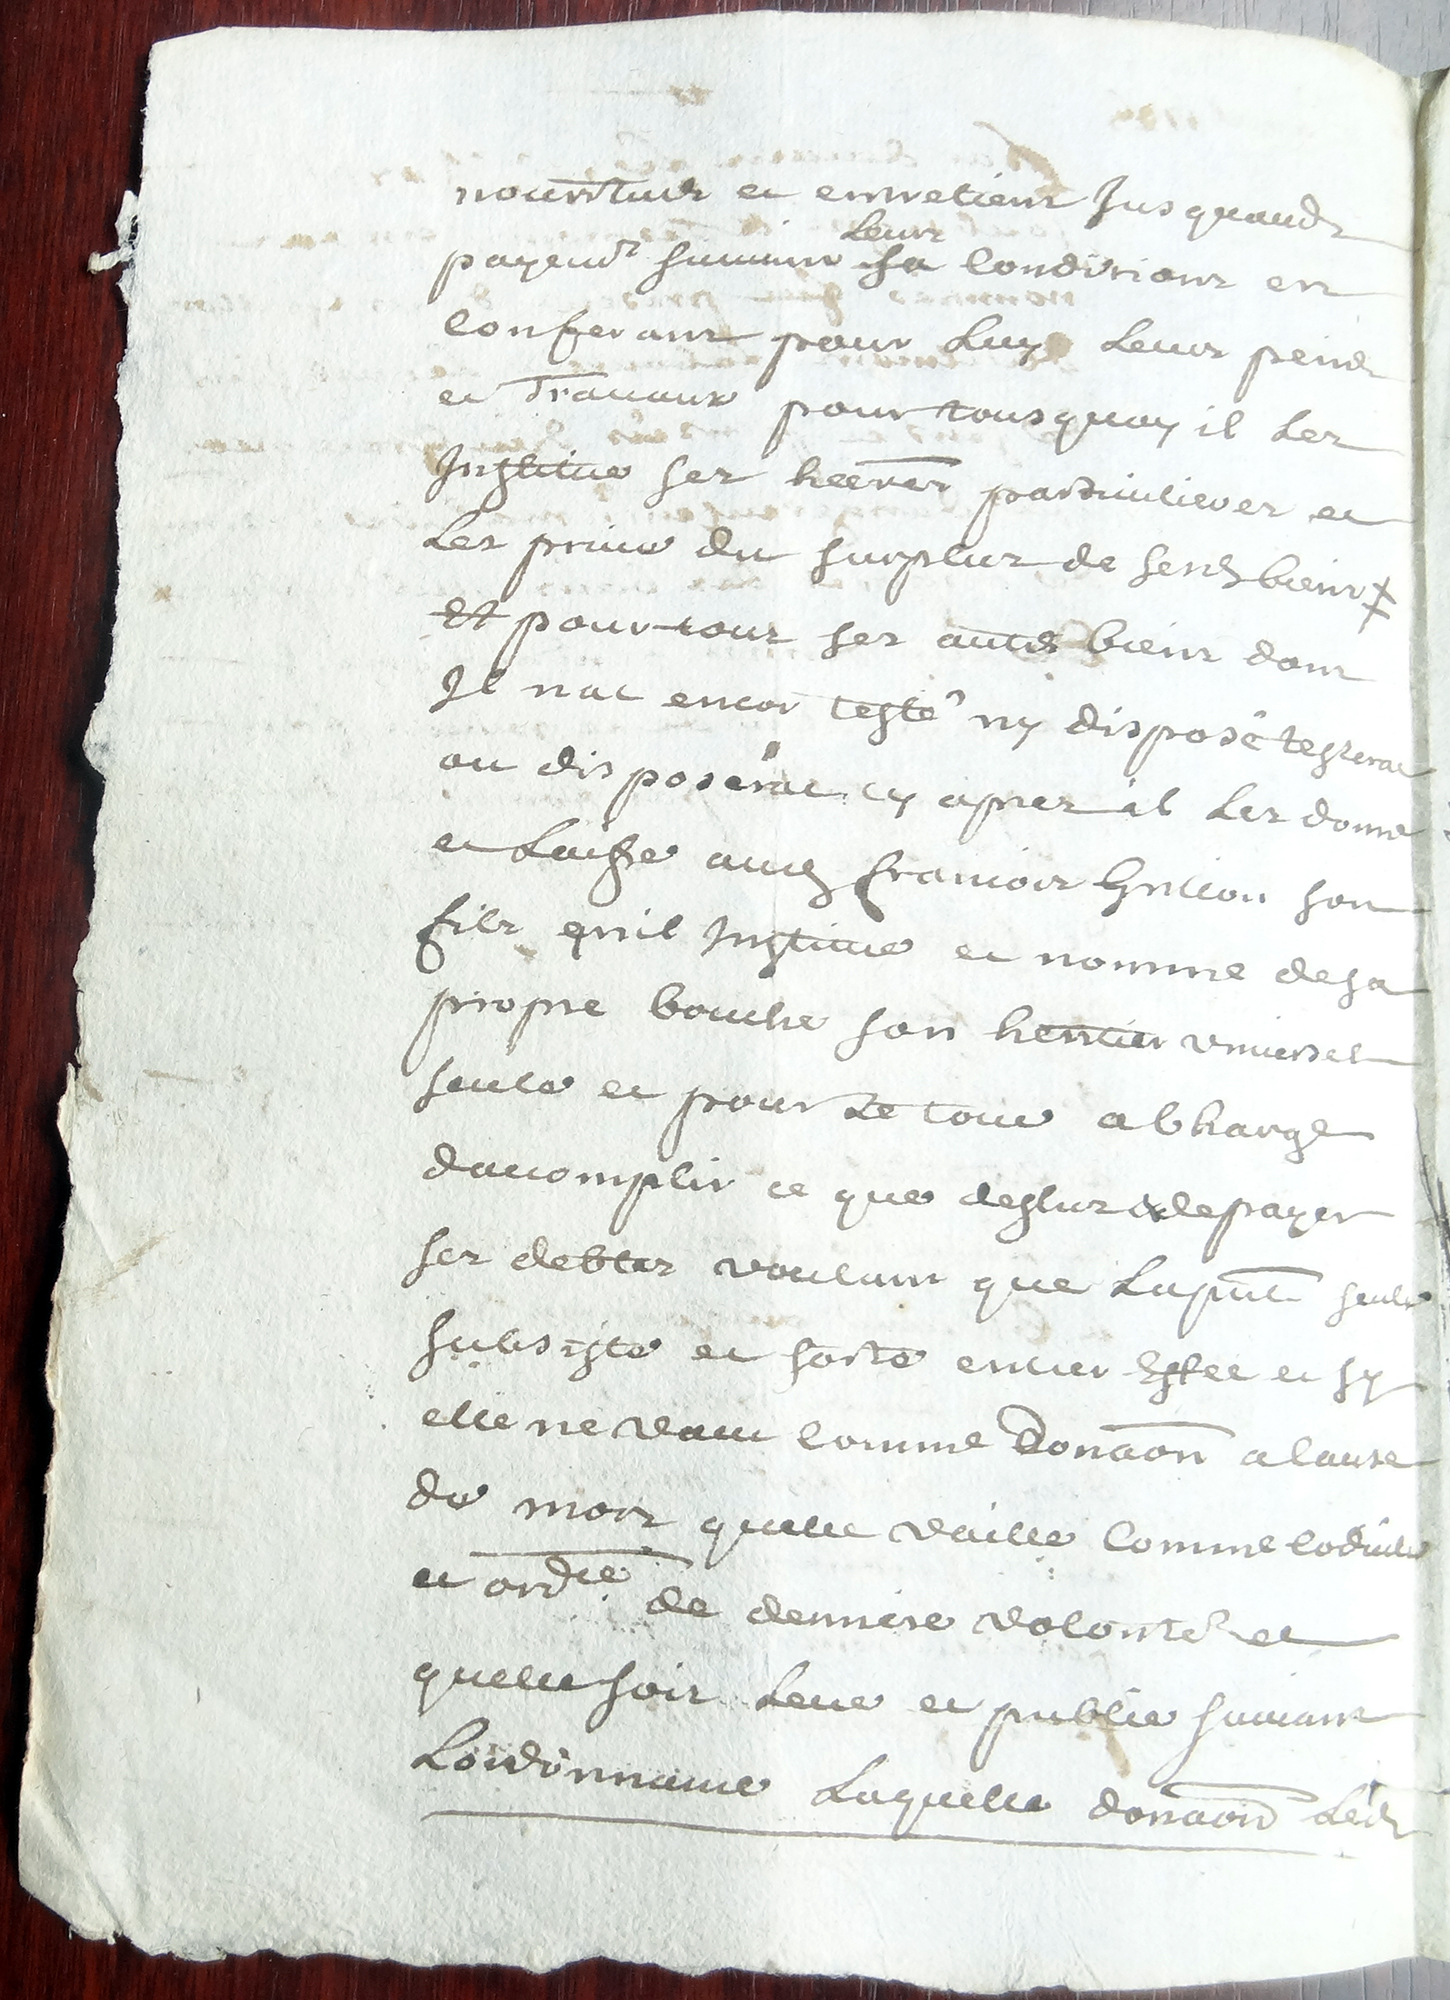 nourriture et entretient Jusquaudt
payemt suivant leur sa Condition en
Conferant pour Luy Leurs peine
et Travaux pour tous quoy il Les
Institue ses heerers particulieres et
Les prive du surplus de sesd biens ‡
Et pour tout ses autres biens dont
Il nat encor testé ny disposé testerat
ou disposerat cy apres il Les donne
et Laisse aud francois son
fils quil Institue et nomme de sa
propre bouche son heritier universel
seule et pour Le tout a Charge
daccomplir ce que dessus & de payer
ses debtes voulant que La pnte seule
subsiste et sorte entier Effet et sy
elle ne vaut Comme Donaon a Cause
de mort quelle vaille Comme Codicille
et ordce de derniere volonté et
quelle soit Leue et publié suivant
Lordonnance Laquelle donaon Ledt